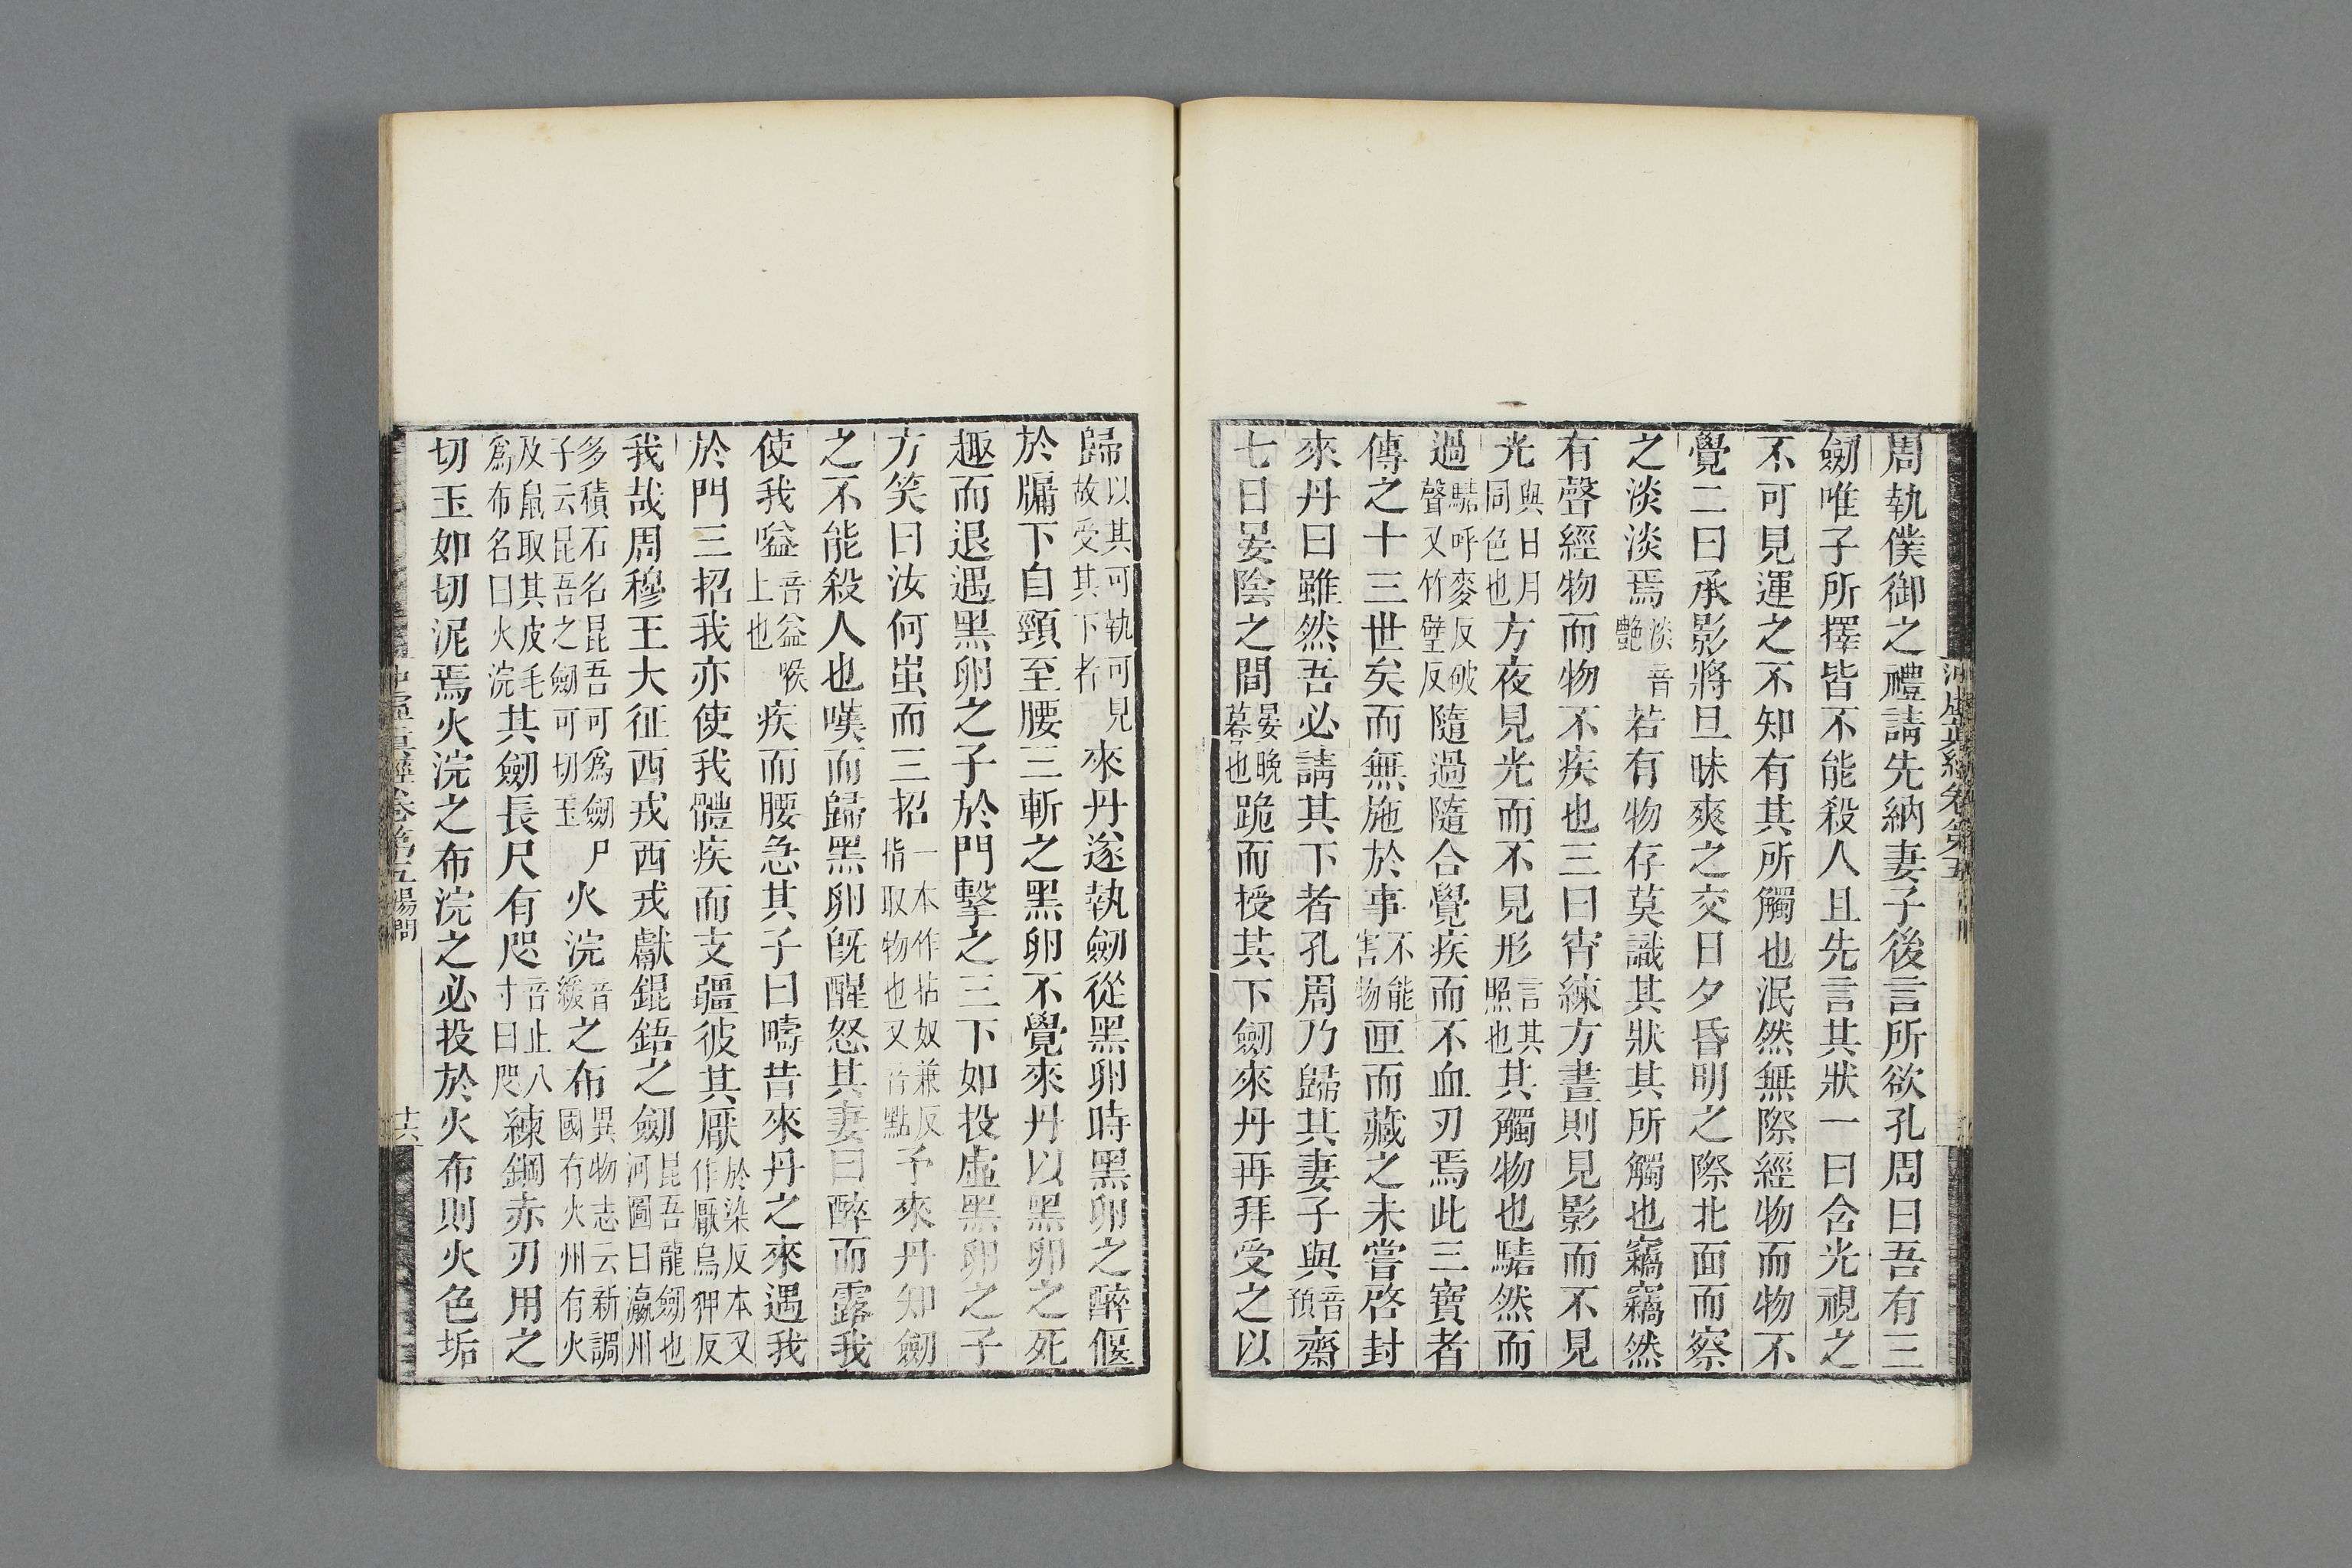 周執僕御之禮請先納妻子後言所欲孔周曰吾有三
劒唯子所擇皆不能殺人且先言其狀一曰含光視之
不可見運之不知有其所觸也泯然無際經物而物不
覺二曰承影將旦昧爽之交日夕昏明之際北面而察
之淡淡焉淡音艷若有物存莫識其狀其所觸也竊竊然
有聲經物而物不疾也三曰宵練方晝則見影而不見
光與日月同色也方夜見光而不見形言其照也其觸物也騞然而
過騞呼麥反破聲又竹壁反隨過隨合覺疾而不血刃焉此三寶者
傳之十三世矣而無施於事不能害物匣而藏之未嘗啓封
來丹曰雖然吾必請其下者孔周乃歸其妻子與音預齋
七日晏陰之間晏晚暮也跪而授其下劒來丹再拜受之以
歸以其可執可見故受其下者來丹遂執劒從黑卵時黑卵之醉偃
於牖下自頸至腰三斬之黑卵不覺來丹以黑卵之死
趣而退遇黑卵之子於門擊之三下如投虛黑卵之子
方笑曰汝何蚩而三招一本作拈奴兼反指取物也又音點予來丹知劒
之不能殺人也嘆而歸黑卵旣醒怒其妻曰醉而露我
使我嗌音益喉上也疾而腰急其子曰疇昔來丹之來遇我
於門三招我亦使我體疾而支彊彼其厭於染反本又作厭烏狎反
我哉周穆王大征西戎西戎獻錕鋙之劒昆吾龍劒也河圖曰瀛州
多積石名昆吾可爲劒尸子云昆吾之劒可切玉火浣音緩之布異物志云新調國有火州有火
及鼠取其皮毛爲布名曰火浣其劒長尺有咫音止八寸曰咫練鋼赤刃用之
切玉如切泥焉火浣之布浣之必投於火布則火色垢
沖虛眞經卷第五湯問
十六